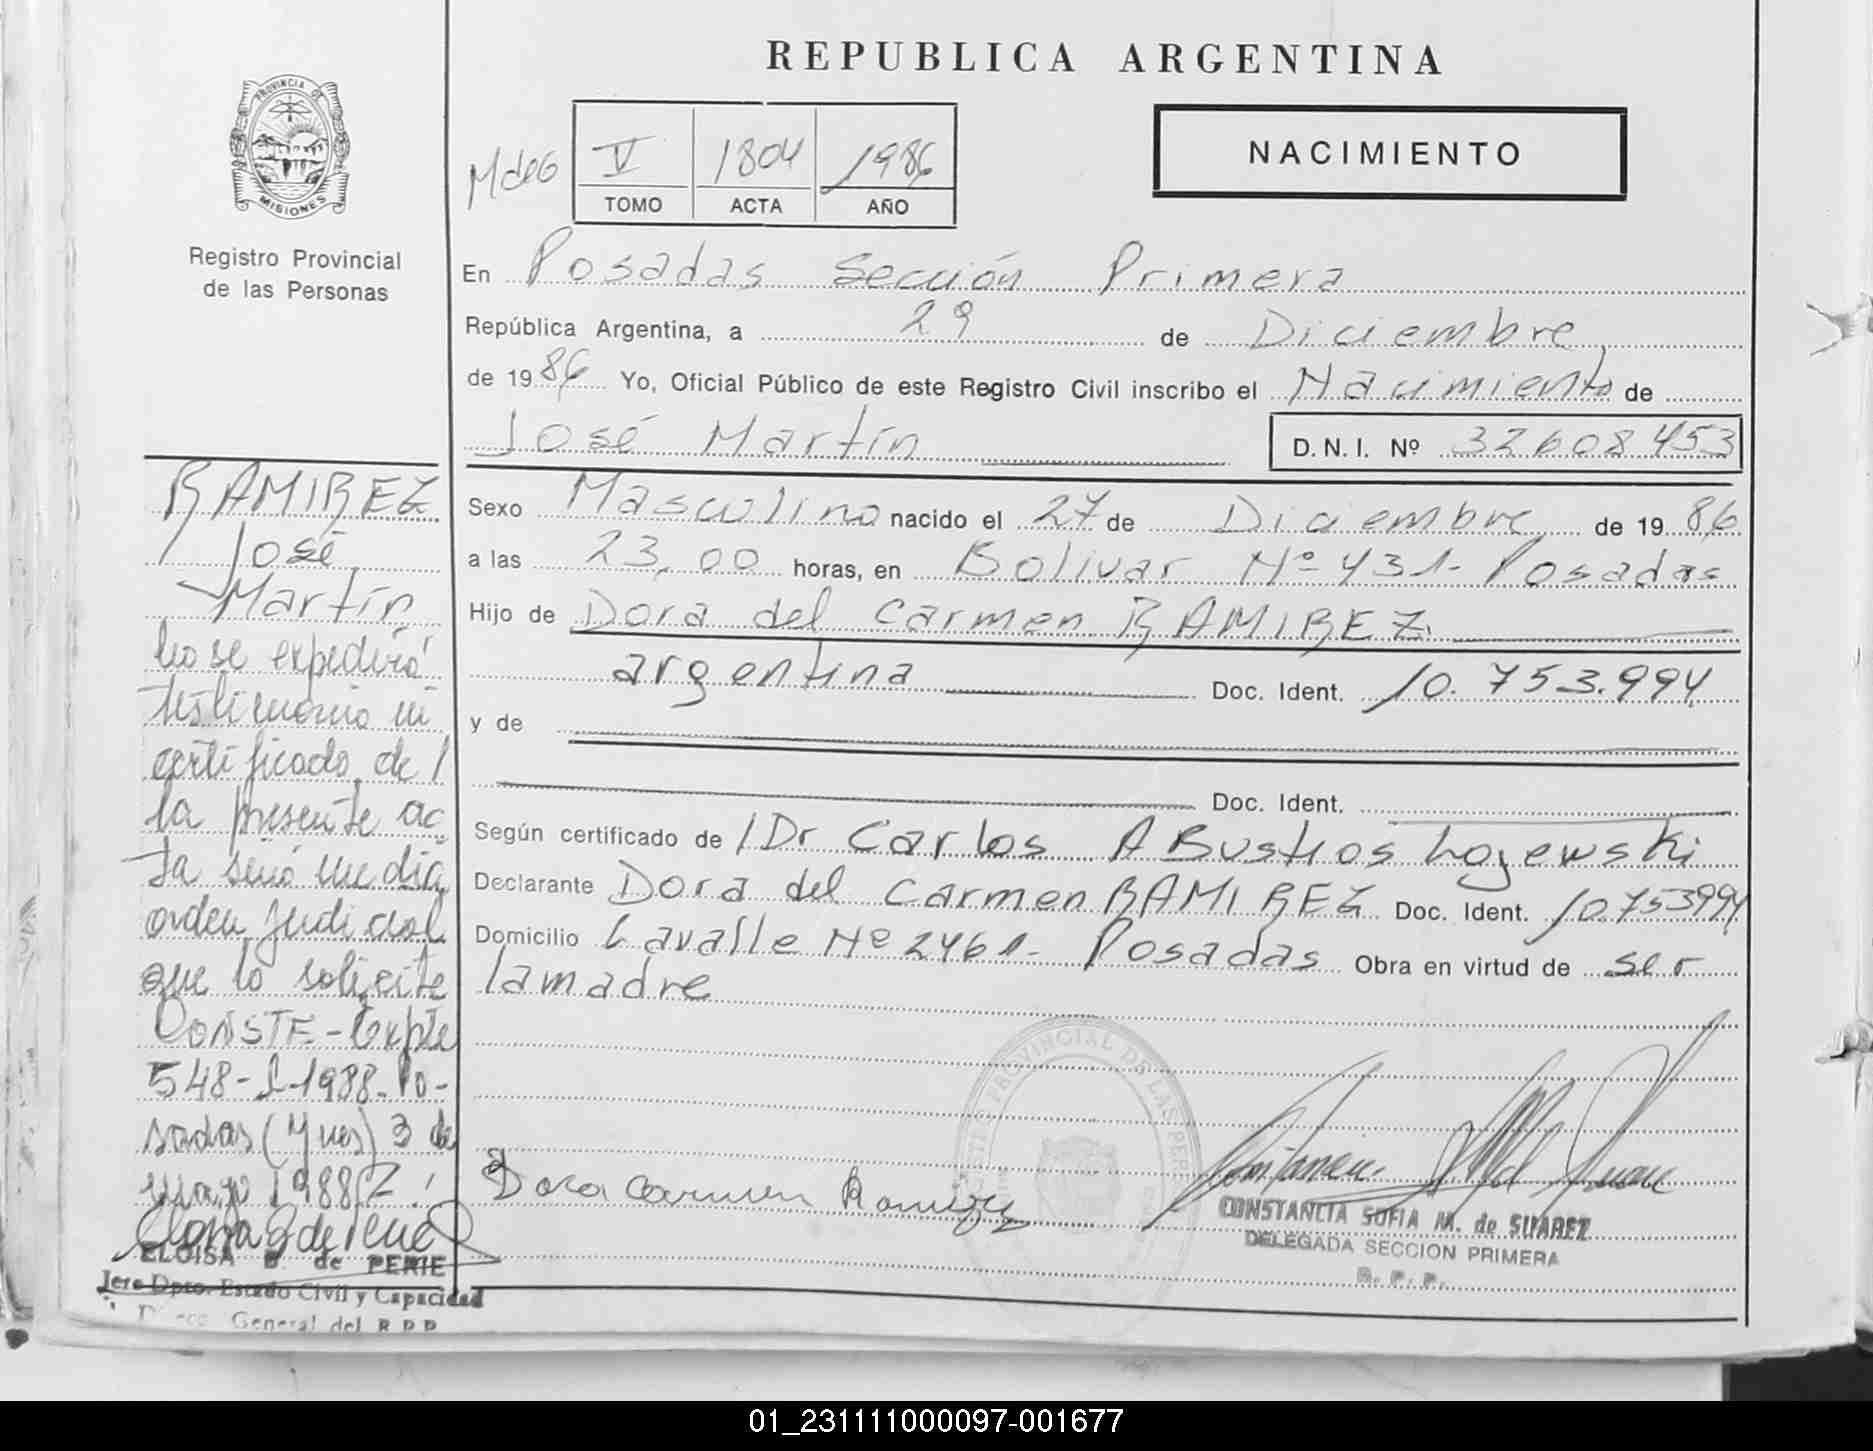 PROVINCIA DE
MISIONES
Registro Provincial
de las Personas
REPUBLICA ARGENTINA
V 1804 1986
TOMO ACTA AÑO
NACIMIENTO
En Posadas Sección Primera
República Argentina, a 29 de Diciembre
de 1986 Yo, Oficial Público de este Registro Civil inscribo el Nacimiento de
José Martín D.N.I. Nº 32608453
Sexo Masculino nacido el 27 de Diciembre de 1986
a las 23,00 horas, en Bolivar Nº 431- Posadas
Hijo de Dora del Carmen RAMIREZ
argentina Doc. Ident. 10.753.994
y de
Doc. Ident.
Según certificado de Dr Carlos A Bustos Lojewski
Declarante Dora del Carmen RAMIREZ Doc. Ident. 10.753994
Domicilio Lavalle Nº 2461- Posadas Obra en virtud de ser
la madre
Dora Carmen Ramirez
CONSTANCIA SOFIA M. de SUAREZ
DELEGADA SECCION PRIMERA
R. P. P.
RAMIREZ
José
Martín
No se expedirá
testimonio ni
certificado de
la presente ac
ta sino media
orden judicial
que lo solicite
CONSTE - Expte
548-L-1988- Po-
sadas (Mnes) 3 de
mayo 1988
ELOISA B de PERIE
Jefe Dpto. Estado Civil y Capacidad
General del R.P.P.
01_231111000097-001677